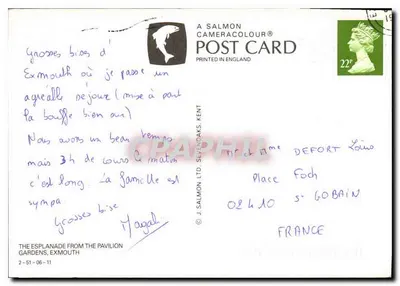 A SALMON
CAMERACOLOUR®
POST CARD
PRINTED IN ENGLAND
22P
Grosses bises d'
Exmouth où je passe un
agréable séjour (mise à part
la bouffe bien sur)
Nous avons un beau temps
mais 3h de cours le matin
c'est long. La famille est
sympa
Grosses bise
Magali
© J. SALMON LTD. SEVENOAKS. KENT
DEFORT
Place Foch
02410 St GOBAIN
FRANCE
THE ESPLANADE FROM THE PAVILION
GARDENS, EXMOUTH
2-51-06-11